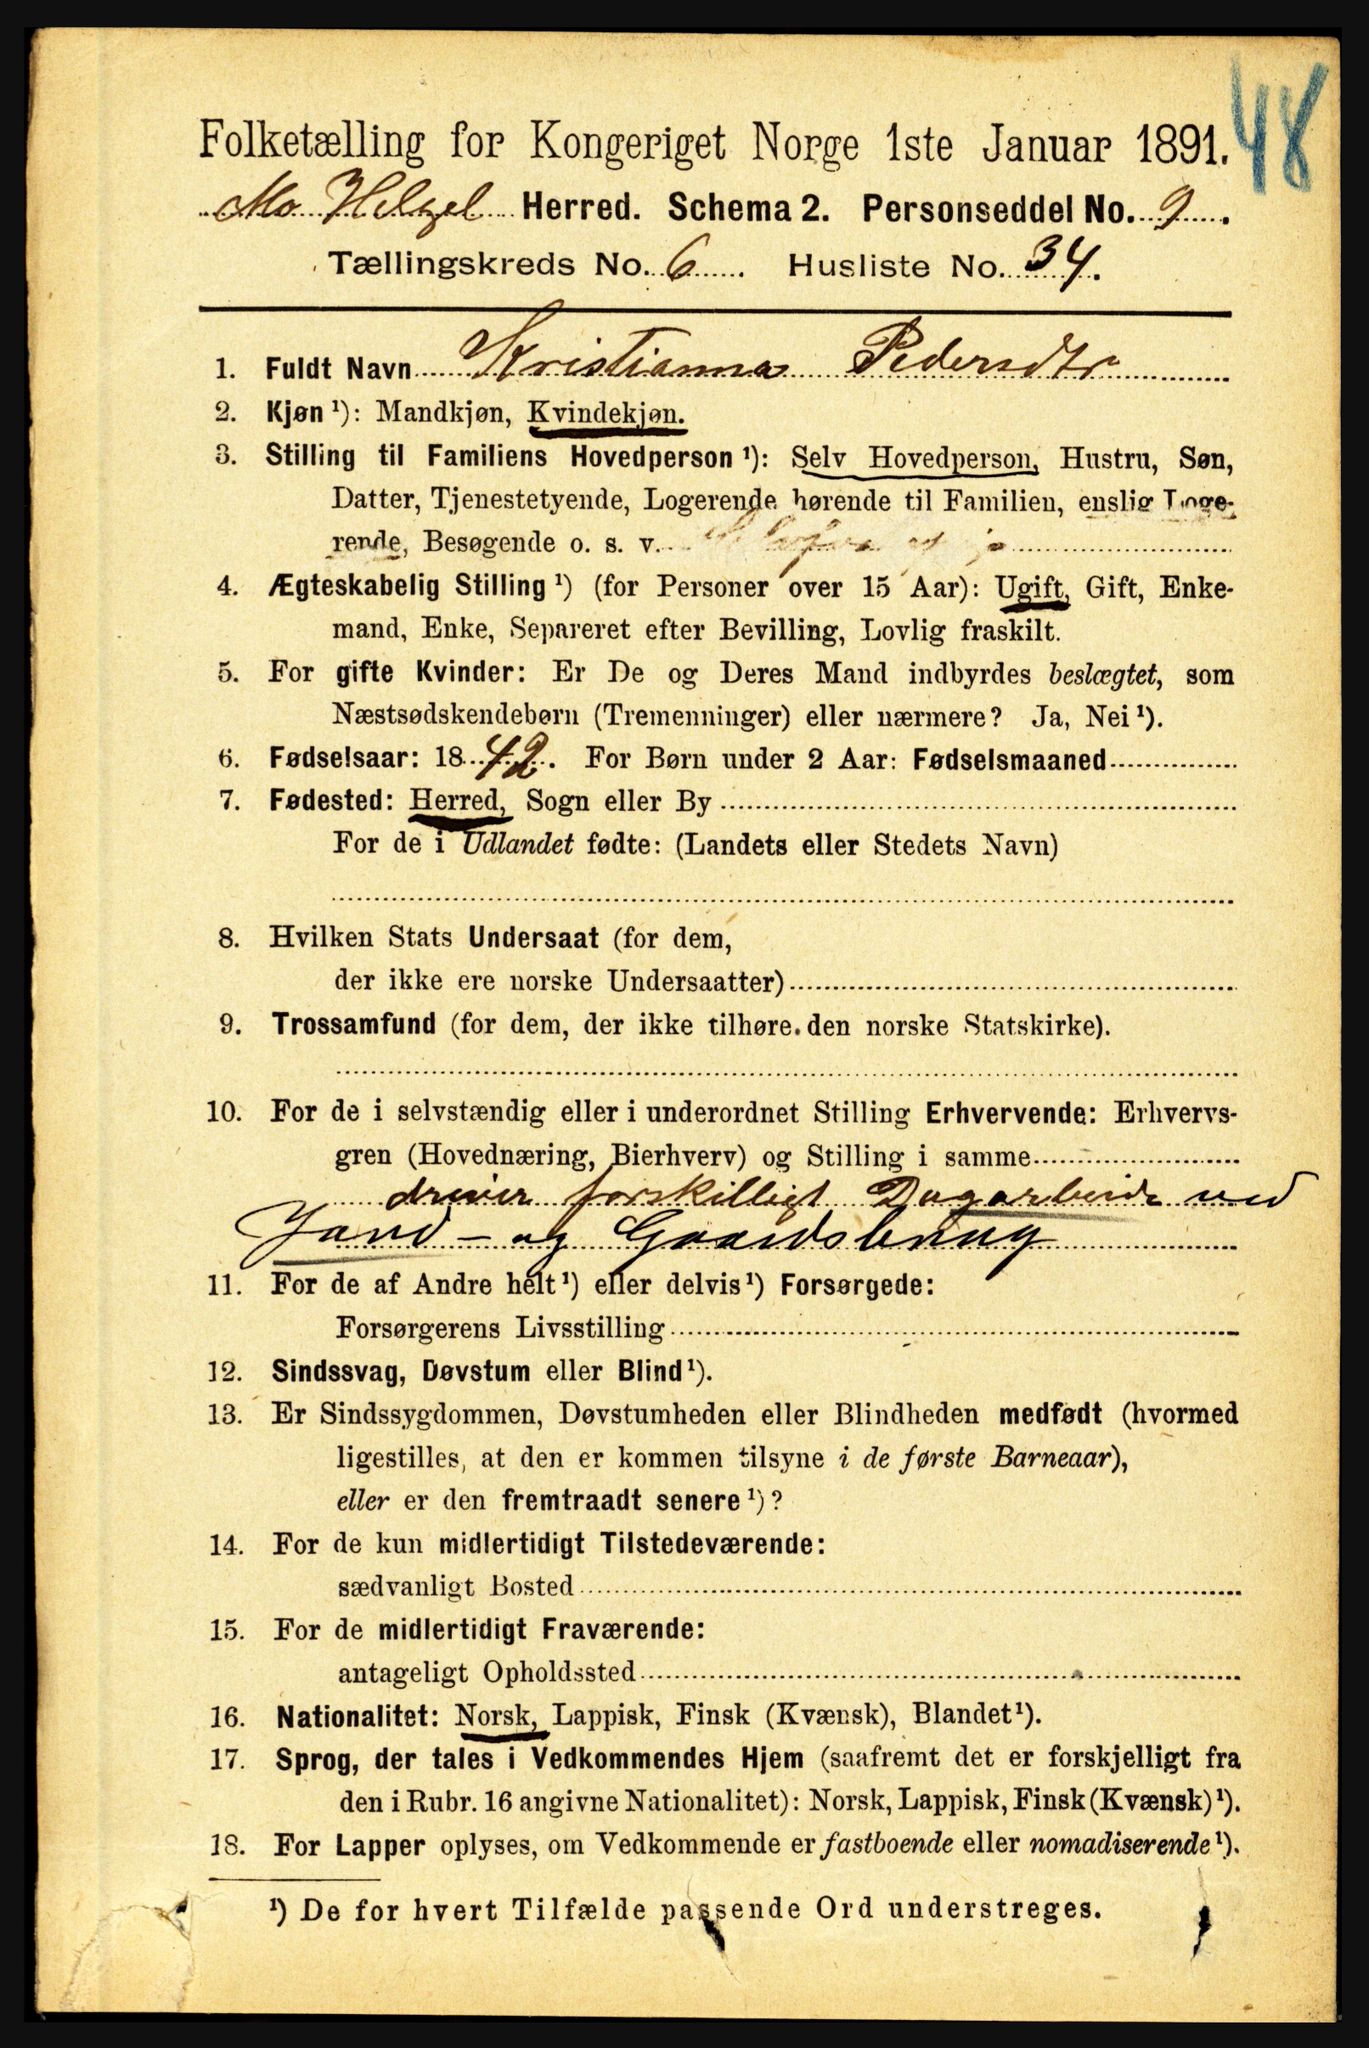 48
Folketælling for Kongeriget Norge 1ste Januar 1891.
Mo Helgel Herred. Schema 2. Personseddel No. 9.
Tællingskreds No. 6. Husliste No. 34.
1. Fuldt Navn Kristianna Pedersdtr
2. Kjøn ¹): Mandkjøn, Kvindekjøn.
3. Stilling til Familiens Hovedperson ¹): Selv Hovedperson, Hustru, Søn,
Datter, Tjenestetyende, Logerende hørende til Familien, enslig Loge-
rende, Besøgende o. s. v.
4. Ægteskabelig Stilling ¹) (for Personer over 15 Aar): Ugift, Gift, Enke-
mand, Enke, Separeret efter Bevilling, Lovlig fraskilt.
5. For gifte Kvinder: Er De og Deres Mand indbyrdes beslægtet, som
Næstsødskendebørn (Tremenninger) eller nærmere? Ja, Nei ¹).
6. Fødselsaar: 1842. For Børn under 2 Aar: Fødselsmaaned
7. Fødested: Herred, Sogn eller By
For de i Udlandet fødte: (Landets eller Stedets Navn)
8. Hvilken Stats Undersaat (for dem,
der ikke ere norske Undersaatter)
9. Trossamfund (for dem, der ikke tilhøre den norske Statskirke).
10. For de i selvstændig eller i underordnet Stilling Erhvervende: Erhvervs-
gren (Hovednæring, Bierhverv) og Stilling i samme
driver forskilligt Dagarbeide ved
Jord- og Gaardsbrug
11. For de af Andre helt ¹) eller delvis ¹) Forsørgede:
Forsørgerens Livsstilling
12. Sindssvag, Døvstum eller Blind ¹).
13. Er Sindssygdommen, Døvstumheden eller Blindheden medfødt (hvormed
ligestilles, at den er kommen tilsyne i de første Barneaar),
eller er den fremtraadt senere ¹)?
14. For de kun midlertidigt Tilstedeværende:
sædvanligt Bosted
15. For de midlertidigt Fraværende:
antageligt Opholdssted
16. Nationalitet: Norsk, Lappisk, Finsk (Kvænsk), Blandet ¹).
17. Sprog, der tales i Vedkommendes Hjem (saafremt det er forskjelligt fra
den i Rubr. 16 angivne Nationalitet): Norsk, Lappisk, Finsk (Kvænsk) ¹).
18. For Lapper oplyses, om Vedkommende er fastboende eller nomadiserende ¹).
¹) De for hvert Tilfælde passende Ord understreges.